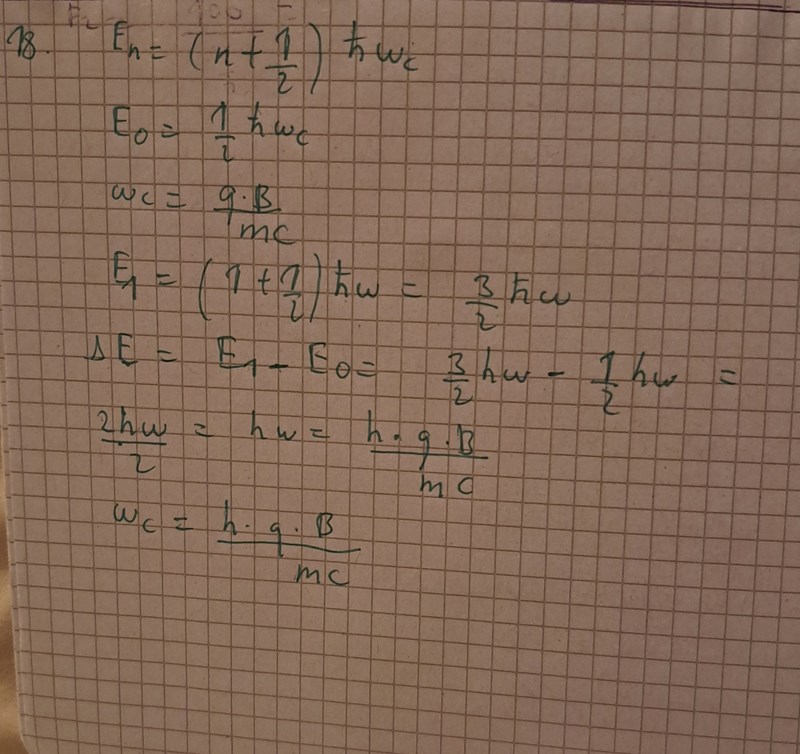 18. Eₙ = (n + 1/2) ħ ω_c
E₀ = 1/2 ħω_c
ω_c = q·B / mc
E₁ = (1 + 1/2) ħω = 3/2 ħω
ΔE = E₁ - E₀ = 3/2 hω - 1/2 hω =
2hω / 2 = hω = h·q·B / mc
ω_c = h·q·B / mc